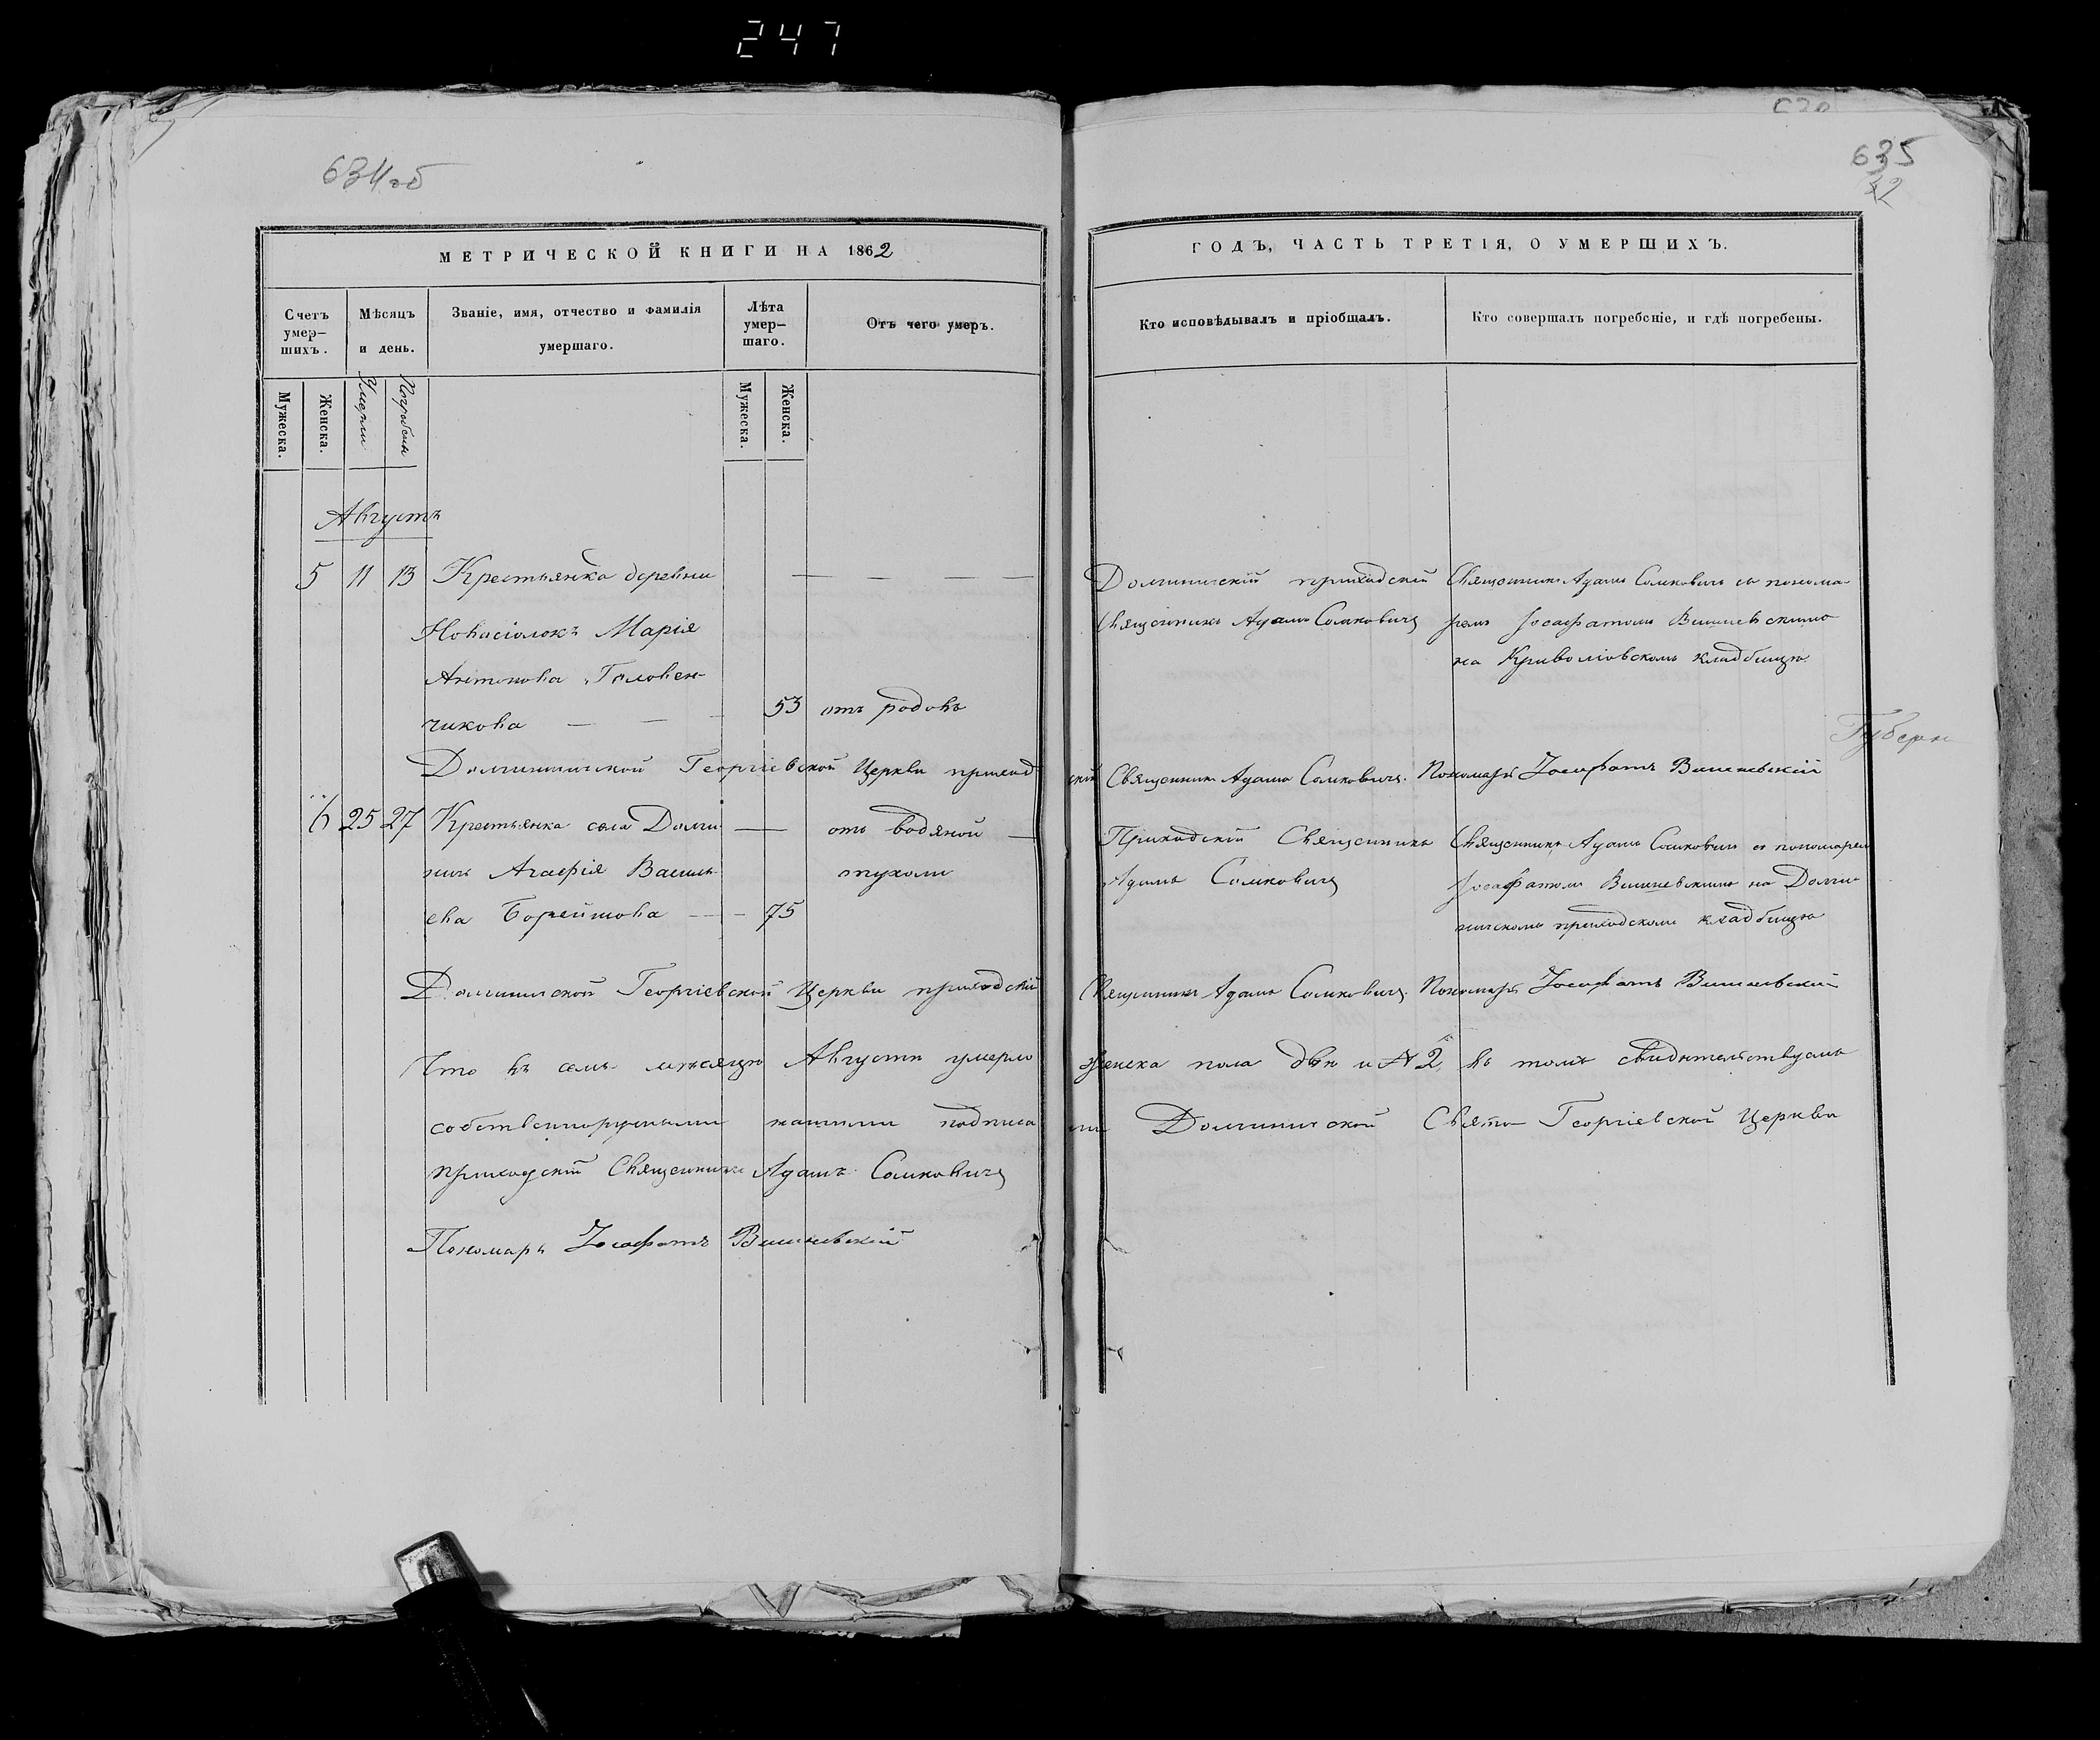 247
634 об
635
42
МЕТРИЧЕСКОЙ КНИГИ НА 1862
ГОДЪ, ЧАСТЬ ТРЕТІЯ, О УМЕРШИХЪ.
Счетъ умер-шихъ.
Мѣсяцъ и день.
Званіе, имя, отчество и фамилія умершаго.
Лѣта умер-шаго.
Отъ чего умеръ.
Кто исповѣдывалъ и пріобщалъ.
Кто совершалъ погребеніе, и гдѣ погребены.
Мужеска.
Женска.
Умерли
Погребены
Мужеска.
Женска.
Августъ
5 11 13 Крестьянка деревни
Новосіолокъ Марія
Антонова Головен-
чикова 53 отъ родовъ
Долгиничскій приходскій
Священникъ Адамъ Сомковичъ
Священникъ Адамъ Сомковичъ съ понома-
ремъ Іосафатомъ Вишневскимъ
на кладбищѣ
Губерн
Долгиничской Георгіевской Церкви приход
скій Священникъ Адамъ Сомковичъ. Пономарь Іосафатъ Вишневскій
6 25 27 Крестьянка села Долги-
ничъ Агафія Василь-
ева 75
отъ водяной
пухоли
Приходскій Священникъ
Адамъ Сомковичъ
Священникъ Адамъ Сомковичъ съ пономаремъ
Іосафатомъ Вишневскимъ на Долги-
ничскомъ приходскомъ кладбищѣ
Долгиничской Георгіевской Церкви приходскій
Священникъ Адамъ Сомковичъ. Пономарь Іосафатъ Вишневскій
Что въ семъ мѣсяцѣ Августѣ умерло
женска пола двѣ 2, въ томъ свидѣтельствуемъ
собственноручными нашими подписа
ми Долгиничской Свято Георгіевской Церкви
приходскій Священникъ Адамъ Сомковичъ
Пономарь Іосафатъ Вишневскій